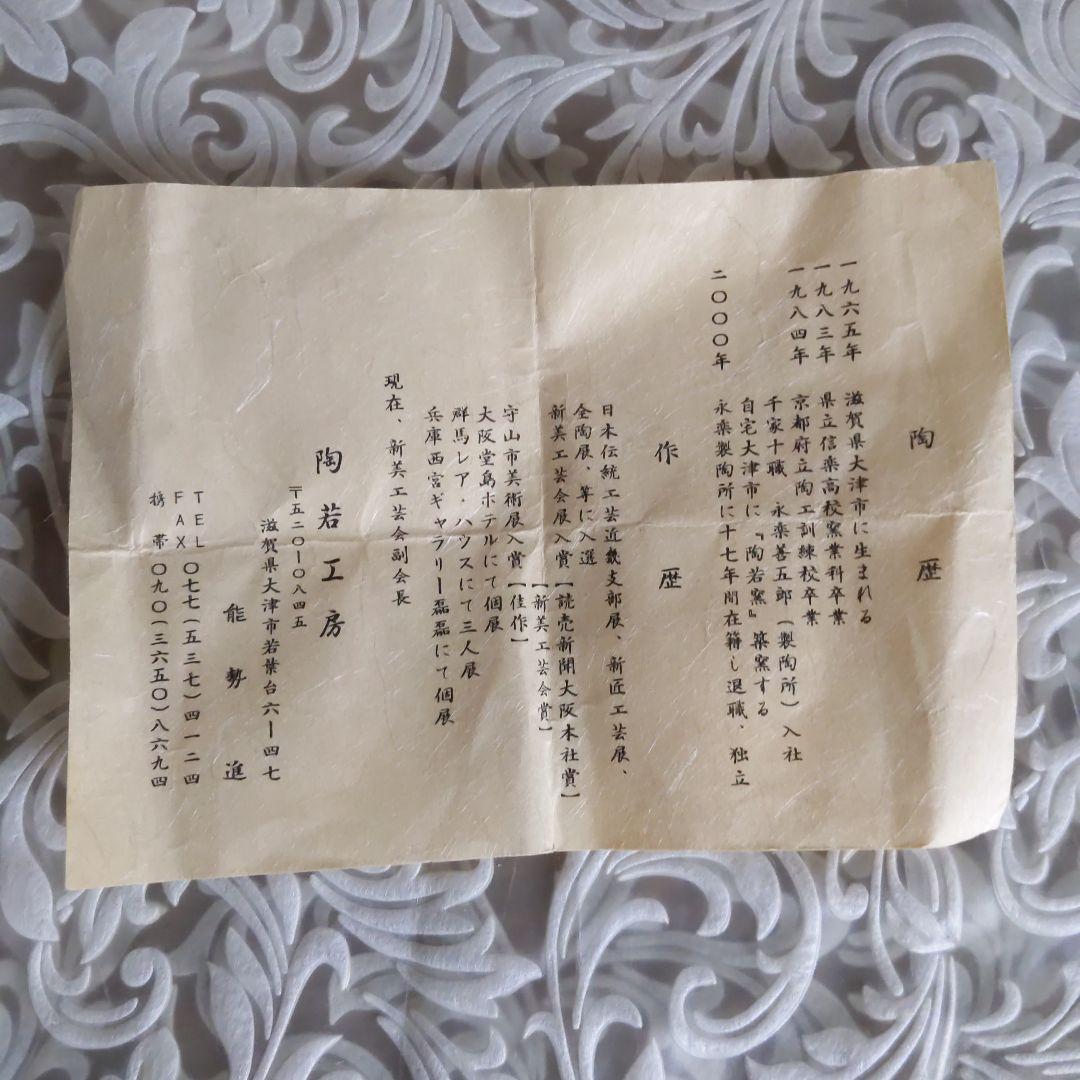 陶歴
一九六五年 滋賀県大津市に生まれる
一九八三年 県立信楽高校窯業科卒業
一九八四年 京都府立陶工訓練校卒業
千家十職 永楽善五郎(製陶所)入社
自宅大津市に『陶若窯』築窯する
二〇〇〇年 永楽製陶所に十七年間在籍し退職、独立
作歴
日本伝統工芸近畿支部展、新匠工芸展、
全陶展、等に入選
新美工芸会展入賞【読売新聞大阪本社賞】
【新美工芸会賞】
守山市美術展入賞【佳作】
大阪堂島ホテルにて個展
群馬レア・ハウスにて三人展
兵庫西宮ギャラリー磊磊にて個展
現在、新美工芸会副会長
陶若工房
〒五二〇ー〇八四五
滋賀県大津市若葉台六ー四七
能勢進
TEL 〇七七(五三七)四一二四
FAX
携帯 〇九〇(三六五〇)八六九四